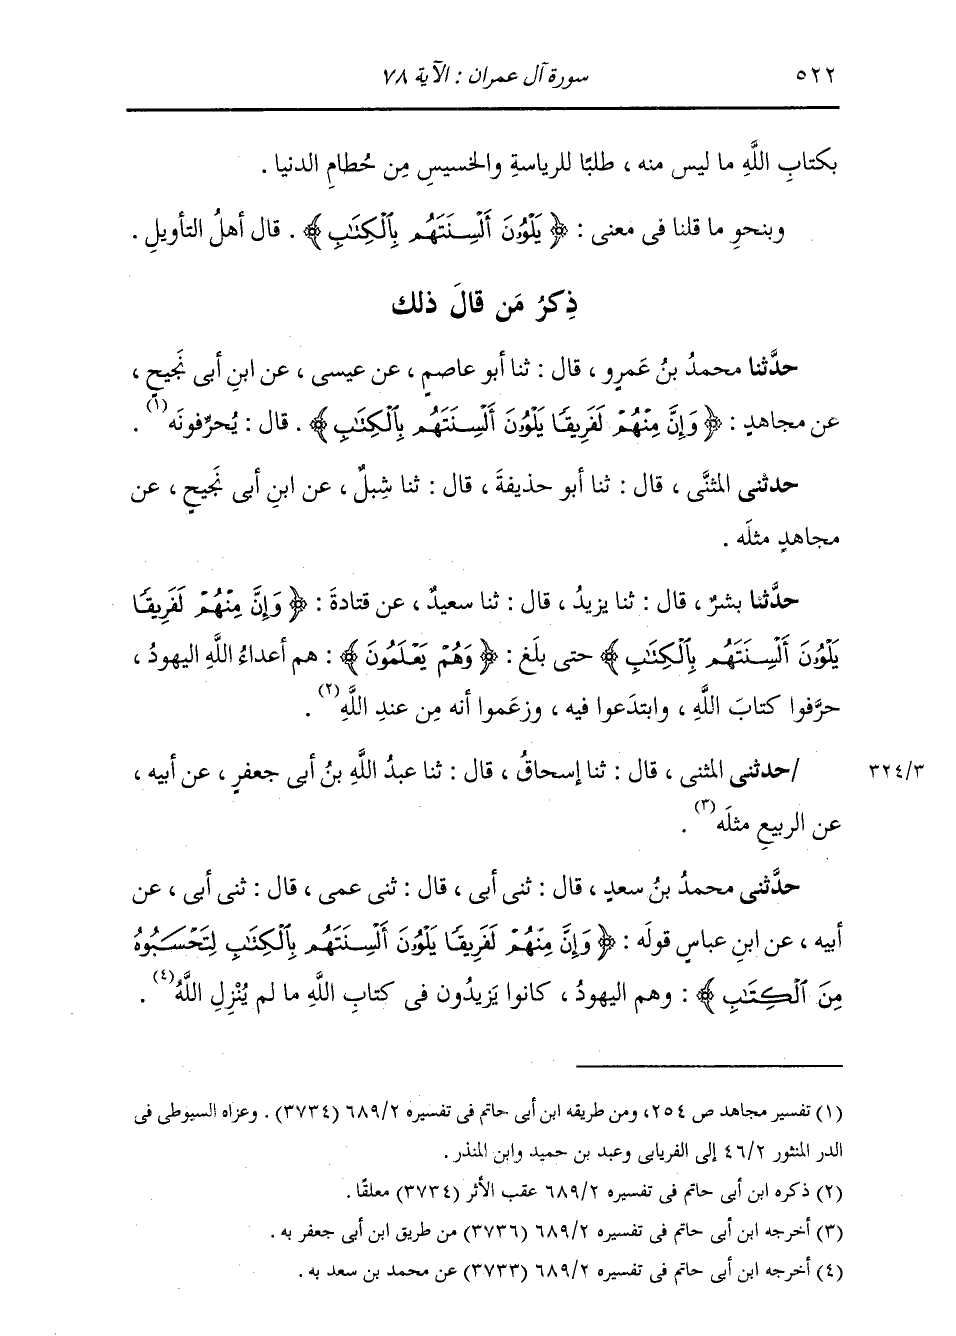 ٥٢٢ سورة آل عمران : الآية ٧٨
بكتابِ اللَّهِ ما ليس منه ، طلبًا للرياسةِ والخسيسِ مِن حُطامِ الدنيا .
وبنحوِ ما قلنا فى معنى : ﴿ يَلْوُۥنَ أَلْسِنَتَهُم بِٱلْكِتَٰبِ ﴾ . قال أهلُ التأويلِ .
ذِكرُ مَن قالَ ذلك
حدَّثنا محمدُ بنُ عَمرٍو ، قال : ثنا أبو عاصمٍ ، عن عيسى ، عن ابنِ أبى نَجيحٍ ،
عن مجاهدٍ : ﴿ وَإِنَّ مِنْهُمْ لَفَرِيقًا يَلْوُۥنَ أَلْسِنَتَهُم بِٱلْكِتَٰبِ ﴾ . قال : يُحرِّفونَه (١) .
حدثنى المثنَّى ، قال : ثنا أبو حذيفةَ ، قال : ثنا شِبلٌ ، عن ابنِ أبى نَجيحٍ ، عن
مجاهدٍ مثلَه .
حدَّثنا بشرٌ ، قال : ثنا يزيدُ ، قال : ثنا سعيدٌ ، عن قتادةَ : ﴿ وَإِنَّ مِنْهُمْ لَفَرِيقًا
يَلْوُۥنَ أَلْسِنَتَهُم بِٱلْكِتَٰبِ ﴾ حتى بلَغ : ﴿ وَهُمْ يَعْلَمُونَ ﴾ : هم أعداءُ اللَّهِ اليهودُ ،
حرَّفوا كتابَ اللَّهِ ، وابتدَعوا فيه ، وزعَموا أنه مِن عندِ اللَّهِ (٢) .
٣٢٤/٣ /حدثنى المثنى ، قال : ثنا إسحاقُ ، قال : ثنا عبدُ اللَّهِ بنُ أبى جعفرٍ ، عن أبيه ،
عن الربيعِ مثلَه (٣) .
حدَّثنى محمدُ بنُ سعدٍ ، قال : ثنى أبى ، قال : ثنى عمى ، قال : ثنى أبى ، عن
أبيه ، عن ابنِ عباسٍ قولَه : ﴿ وَإِنَّ مِنْهُمْ لَفَرِيقًا يَلْوُۥنَ أَلْسِنَتَهُم بِٱلْكِتَٰبِ لِتَحْسَبُوهُ
مِنَ ٱلْكِتَٰبِ ﴾ : وهم اليهودُ ، كانوا يَزيدُون فى كتابِ اللَّهِ ما لم يُنْزِلِ اللَّهُ (٤) .
(١) تفسير مجاهد ص ٢٥٤، ومن طريقه ابن أبى حاتم فى تفسيره ٦٨٩/٢ (٣٧٣٤) . وعزاه السيوطى فى
الدر المنثور ٤٦/٢ إلى الفريابى وعبد بن حميد وابن المنذر .
(٢) ذكره ابن أبى حاتم فى تفسيره ٦٨٩/٢ عقب الأثر (٣٧٣٤) معلقًا .
(٣) أخرجه ابن أبى حاتم فى تفسيره ٦٨٩/٢ (٣٧٣٦) من طريق ابن أبى جعفر به .
(٤) أخرجه ابن أبى حاتم فى تفسيره ٦٨٩/٢ (٣٧٣٣) عن محمد بن سعد به .